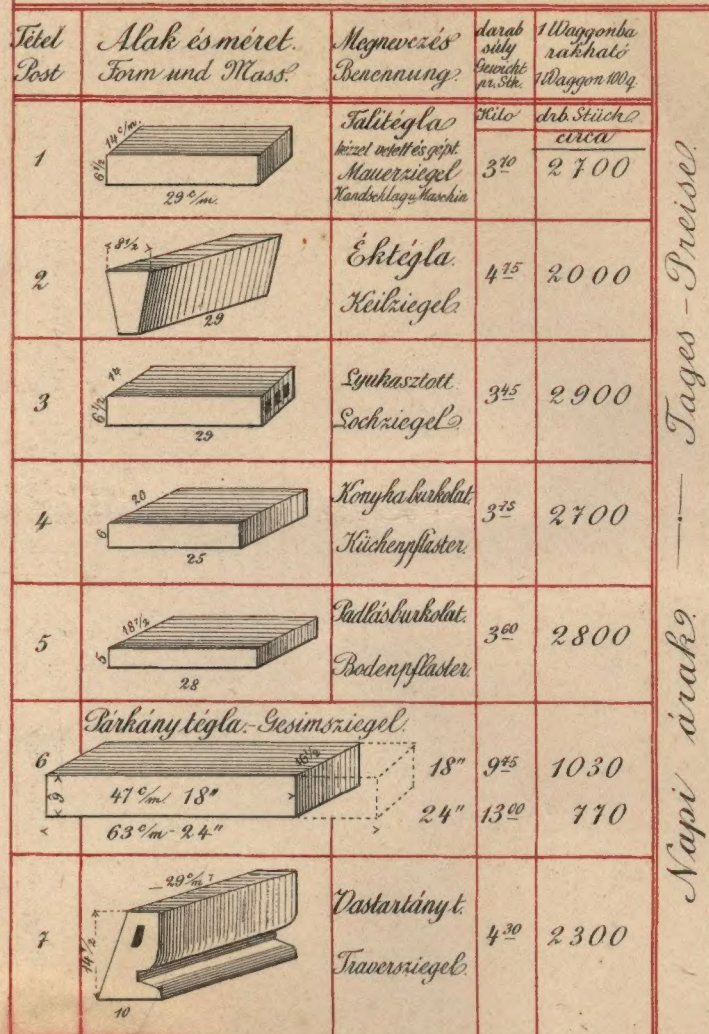 Tétel
Post
Alak és méret.
Form und Mass.
Megnevezés
Benennung.
darab
súly
Gewicht
pr. Stk.
1 Waggonba
rakható
1 Waggon 100 q.
Kilo
drb. Stück
circa
1
14 c/m.
6 1/2
29 c/m.
Falitégla
kézzel vetett és gépt.
Mauerziegel
Handschlag u. Maschin
3 70
2700
2
8 1/2
29
Éktégla.
Keilziegel
4 75
2000
3
14
6 1/2
29
Lyukasztott
Lochziegel
3 45
2900
4
20
6
25
Konyhaburkolat.
Küchenpflaster.
3 75
2700
5
18 1/2
5
28
Padlásburkolat.
Bodenpflaster.
3 60
2800
Párkány tégla.-Gesimsziegel.
6
16 1/2
9
47 c/m. 18"
63 c/m - 24"
18" 9 75 1030
24" 13 00 770
7
29 c/m
14 1/2
10
Vastartány t.
Traversziegel.
4 30
2300
Napi árak. — Tages-Preise.